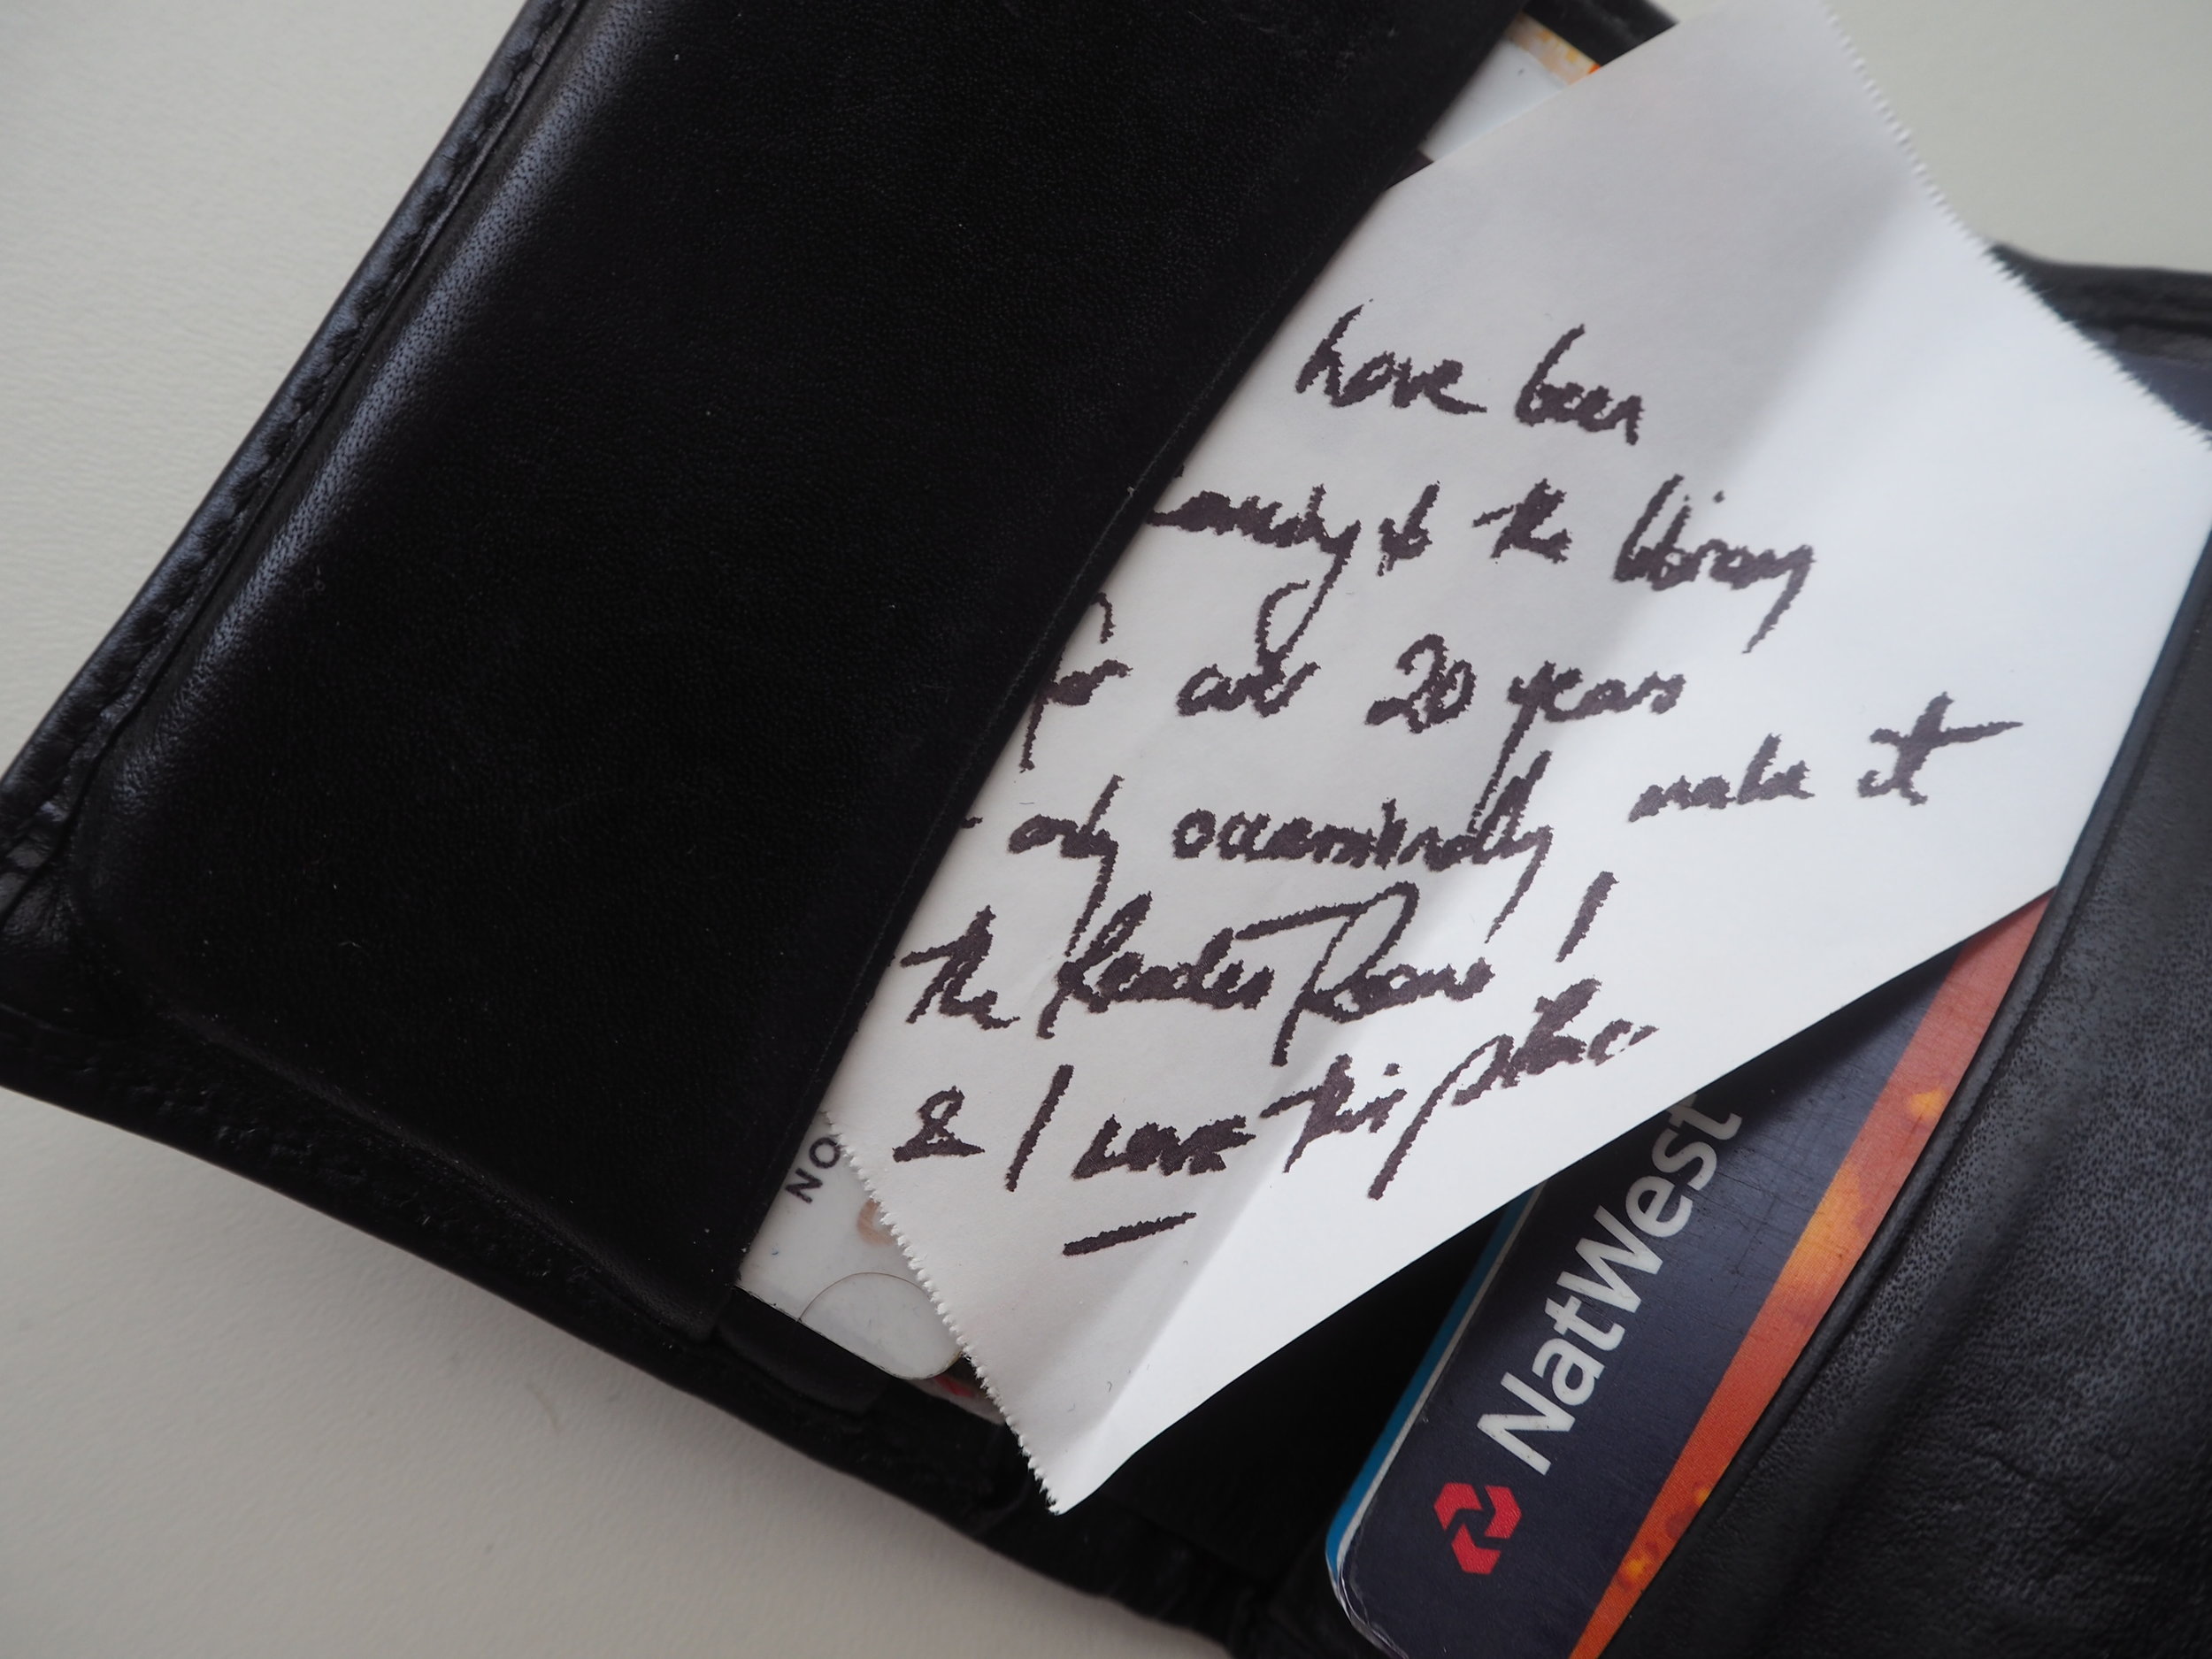 have been
to the library
for over 20 years
only occassionally make it
the Reader Room!
& I LOVE this place
NO
NatWest